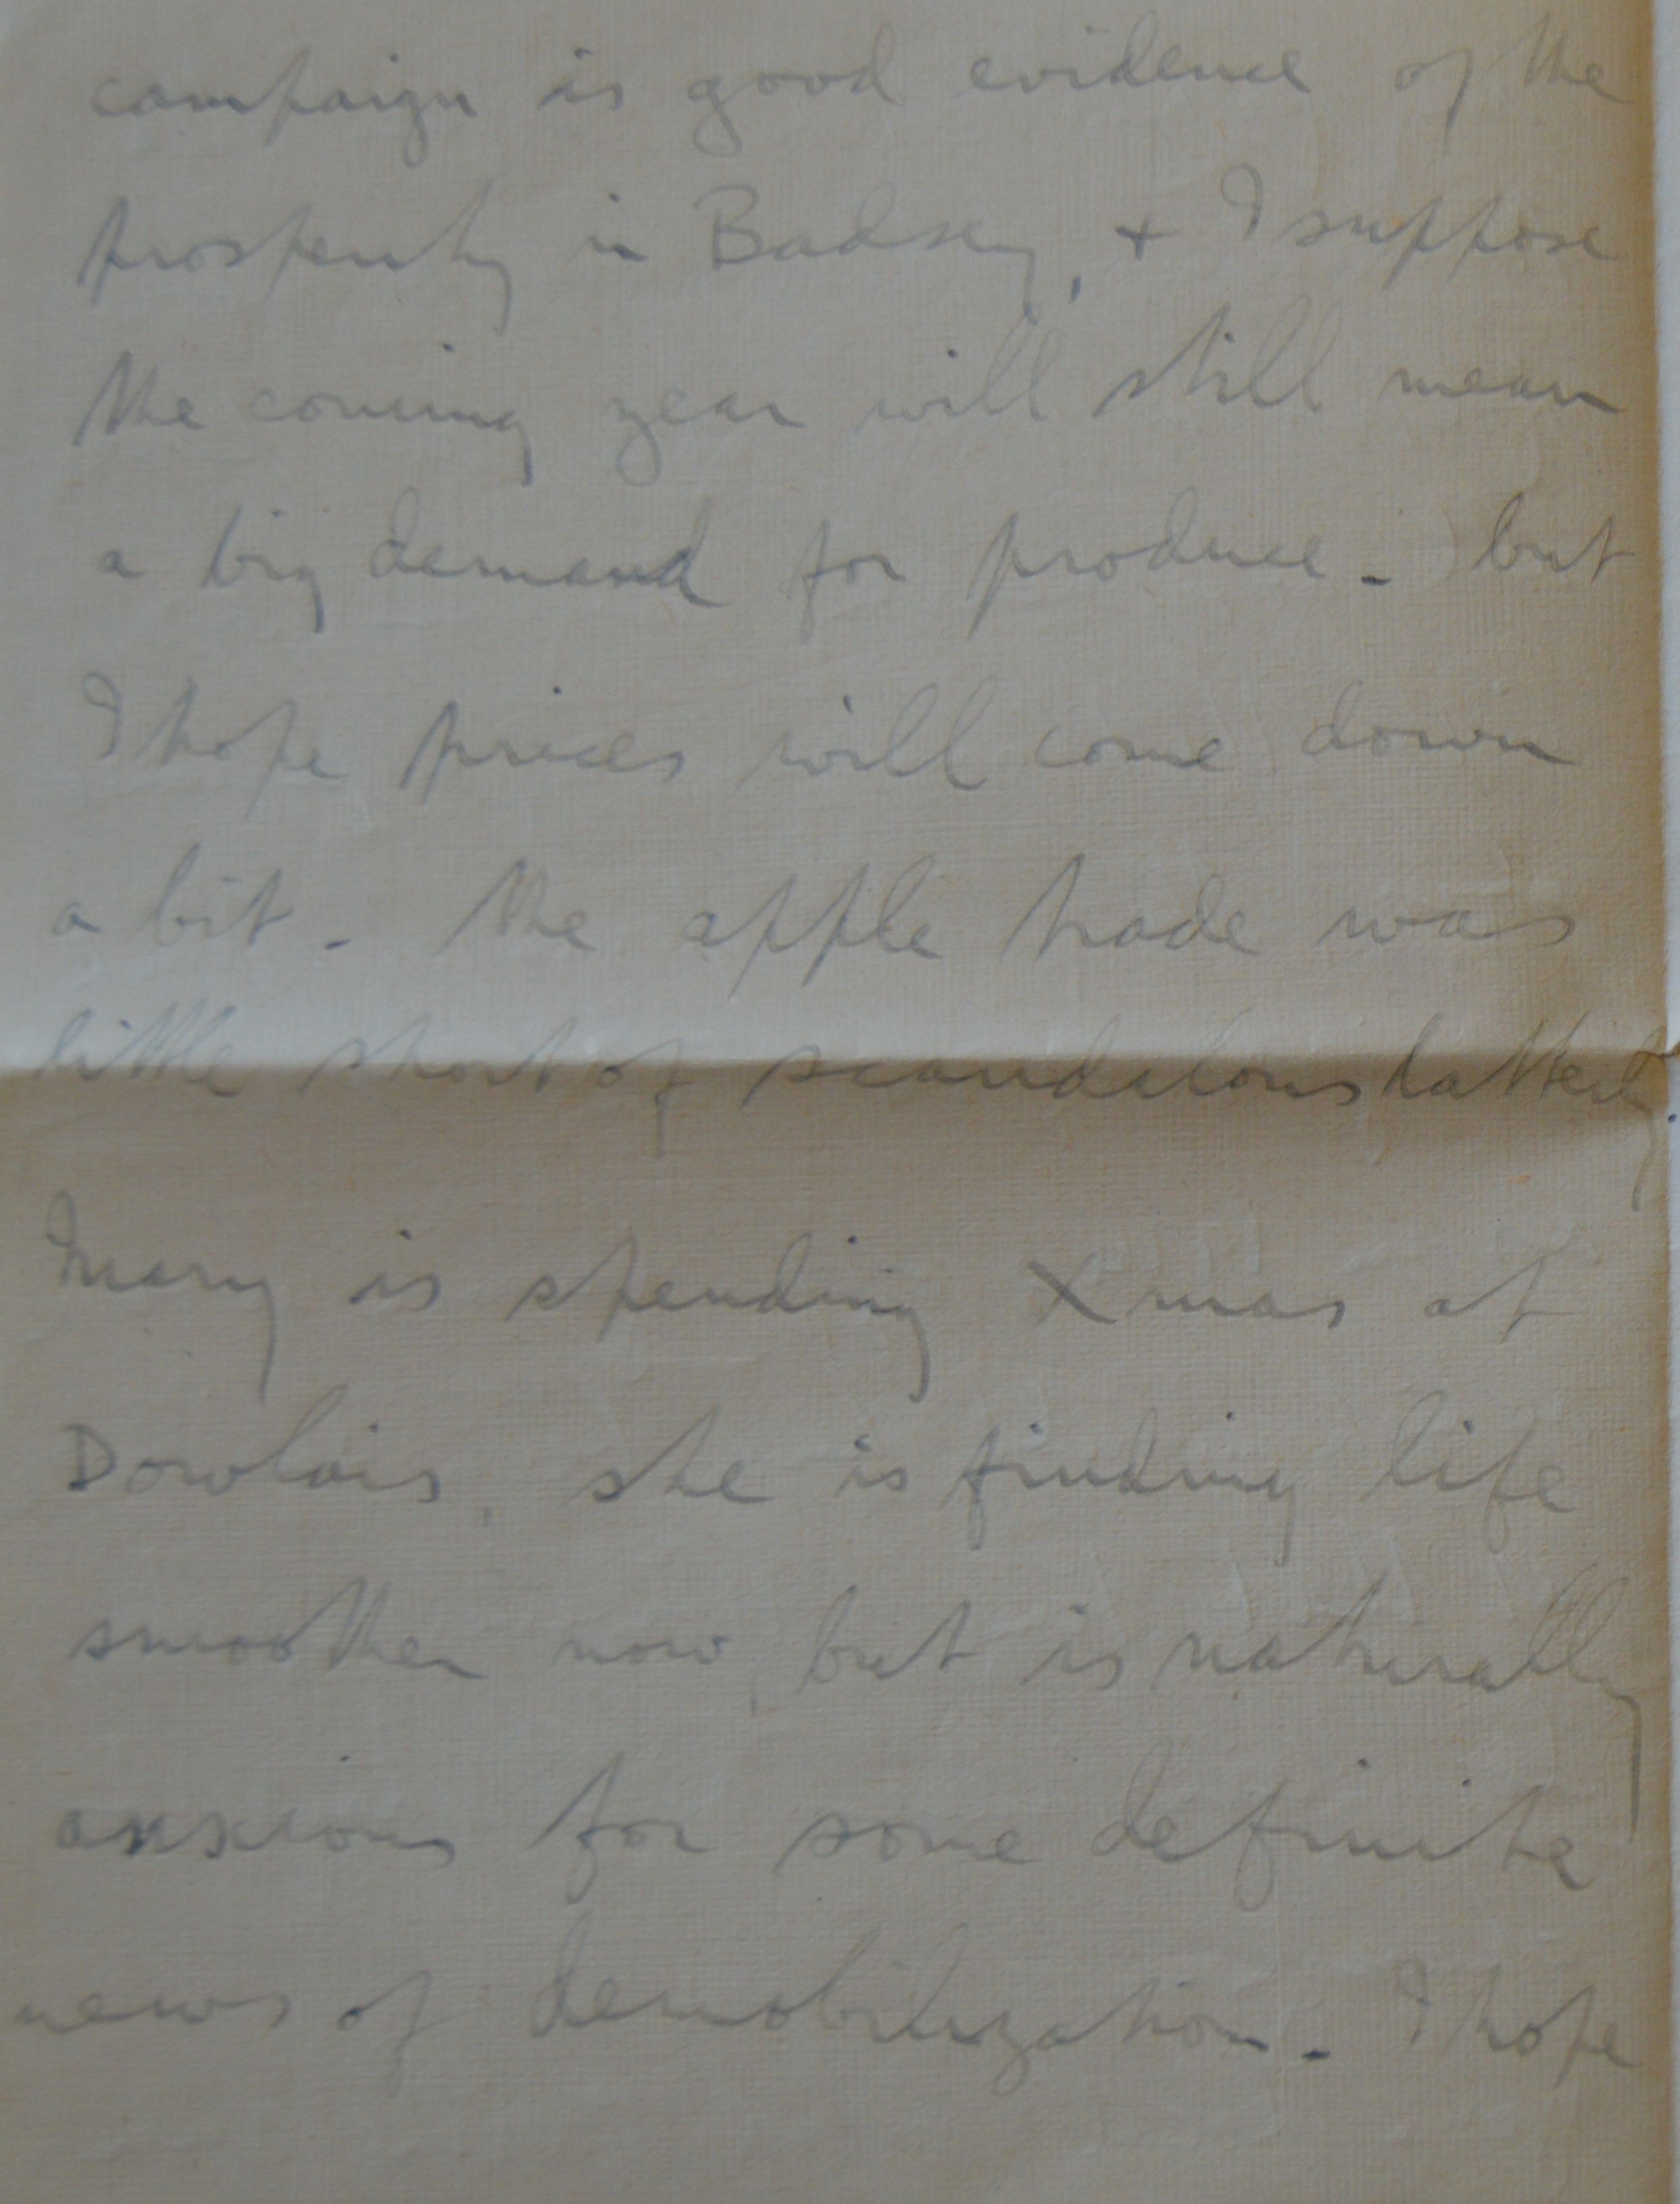 campaign is good evidence of the
prosperity in Badsey, + I suppose
the coming year will still mean
a big demand for produce - but
I hope prices will come down
a bit - the apple trade was
little short of scandalous latterly.
Mary is spending Xmas at
Dowlais, she is finding life
smoother now, but is naturally
anxious for some definite
news of demobilization - I hope